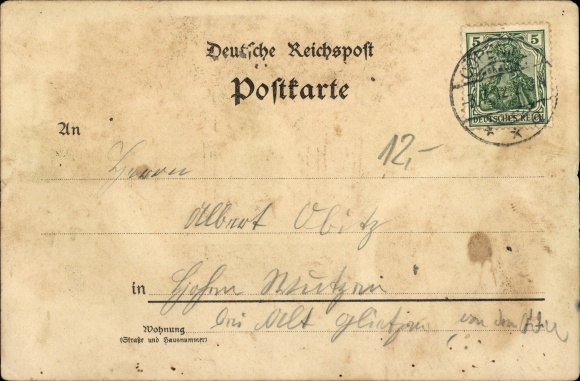 Deutsche Reichspost
Postkarte
5 5
DEUTSCHES REICH
An
Herrn
12,-
Albert Obitz
in Hohen Wutzen
bei Alt Glietzen von dem
Wohnung
(Straße und Hausnummer)